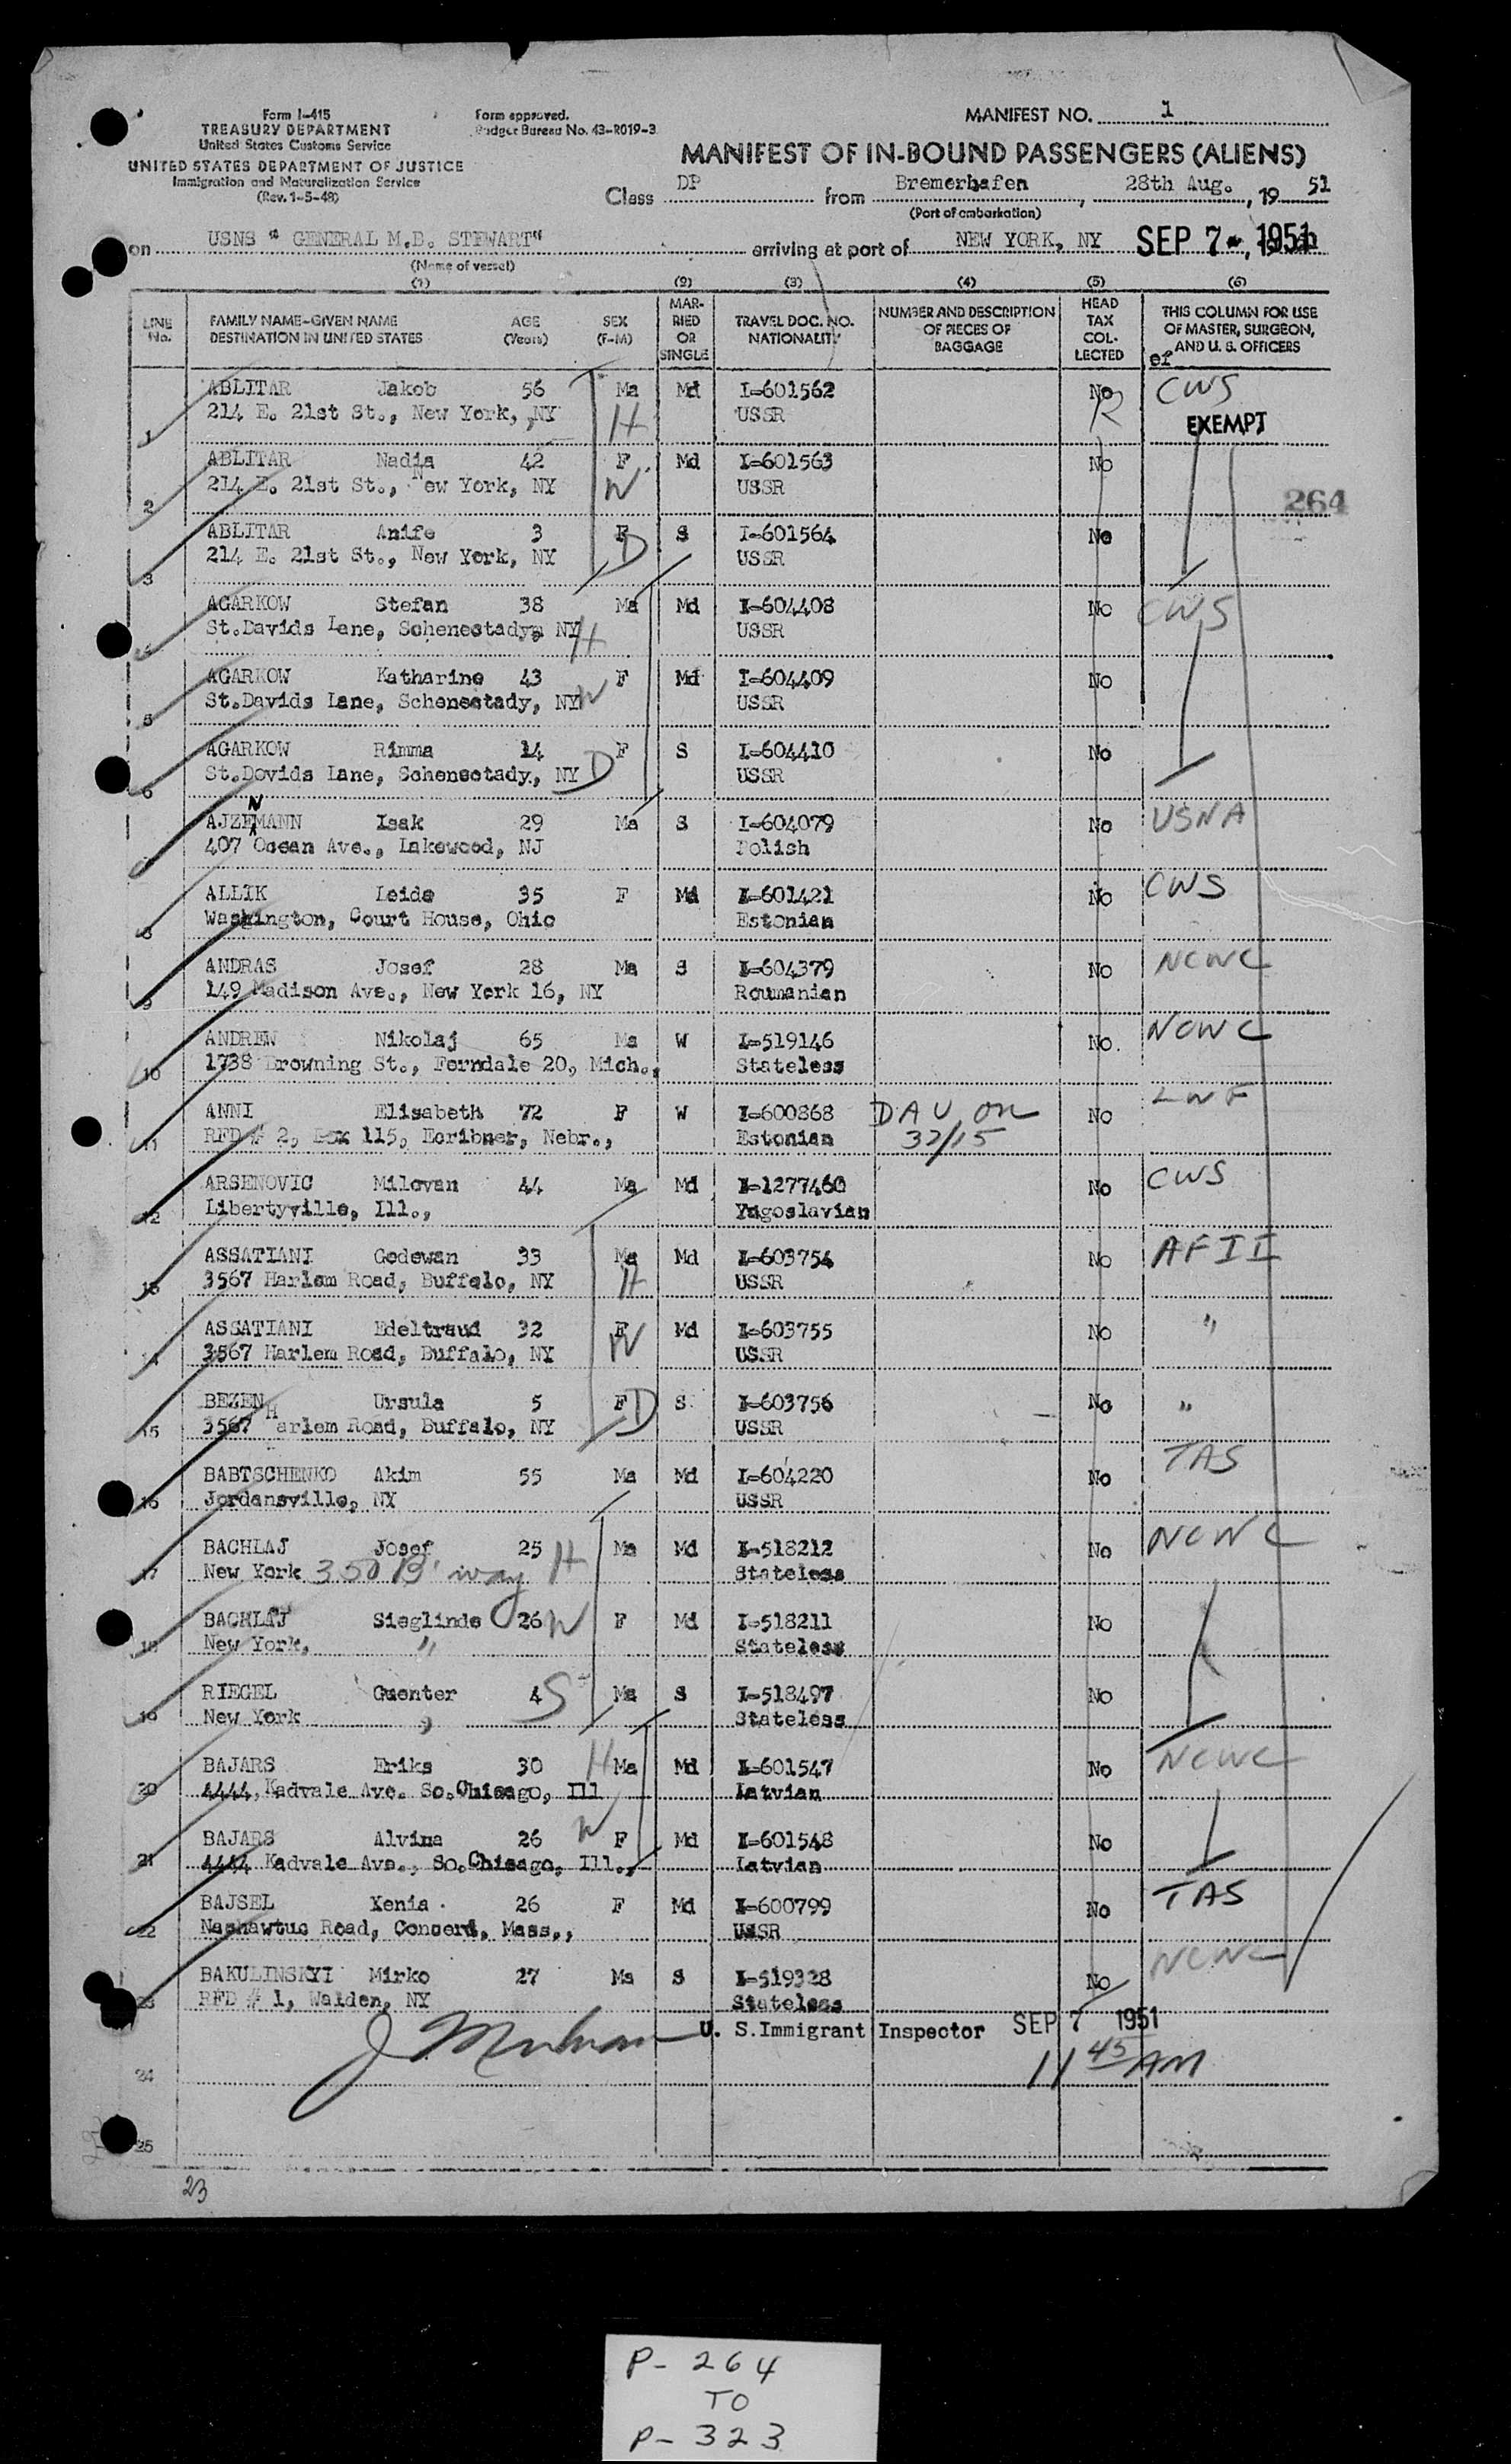 Form I-415
TREASURY DEPARTMENT
United States Customs Service
UNITED STATES DEPARTMENT OF JUSTICE
Immigration and Naturalization Service
(Rev. 1-5-48)
Form approved.
Budget Bureau No. 43-R019-3
MANIFEST NO. 1
MANIFEST OF IN-BOUND PASSENGERS (ALIENS)
Class DP from Bremerhafen, 28th Aug., 19 51
(Port of embarkation)
on USNS " GENERAL M.D. STEWART" arriving at port of NEW YORK, NY SEP 7-, 1951
(Name of vessel)
(1) (2) (3) (4) (5) (6)
LINE No. FAMILY NAME-GIVEN NAME DESTINATION IN UNITED STATES AGE (Years) SEX (F-M) MARRIED OR SINGLE TRAVEL DOC. NO. NATIONALITY NUMBER AND DESCRIPTION OF PIECES OF BAGGAGE HEAD TAX COLLECTED THIS COLUMN FOR USE OF MASTER, SURGEON, AND U. S. OFFICERS
ef
1 ABLITAR Jakob 56 Ma Md I-601562 No CWS
214 E. 21st St., New York, NY H USSR R EXEMPT
2 ABLITAR Nadia 42 F Md I-601563 No
214 E. 21st St., New York, NY W USSR
264
3 ABLITAR Anife 3 F S I-601564 No
214 E. 21st St., New York, NY D USSR
4 AGARKOW Stefan 38 Ma Md I-604408 No CWS
St.Davids Lane, Schenectady, NY H USSR
5 AGARKOW Katharine 43 F Md I-604409 No
St.Davids Lane, Schenectady, NY W USSR
6 AGARKOW Rimma 14 F S I-604410 No
St.Dovids Lane, Schenectady, NY D USSR
7 AJZENMANN Isak 29 Ma S I-604079 No USNA
407 Ocean Ave., Lakewood, NJ Polish
8 ALLIK Leida 35 F Md I-601421 No CWS
Washington, Court House, Ohio Estonian
9 ANDRAS Josef 28 Ma S I-604379 No NCWC
149 Madison Ave., New York 16, NY Roumanian
10 ANDREW Nikolaj 65 Ma W I-519146 No NCWC
1738 Browning St., Ferndale 20, Mich., Stateless
11 ANNI Elisabeth 72 F W I-600868 DAV, on No LWF
RFD # 2, Box 115, Ecribner, Nebr., Estonian 32/15
12 ARSENOVIC Milovan 44 Ma Md I-1277460 No CWS
Libertyville, Ill., Yugoslavian
13 ASSATIANI Godewan 33 Ma Md I-603754 No AFII
3567 Harlem Road, Buffalo, NY H USSR
14 ASSATIANI Edeltraud 32 F Md I-603755 No "
3567 Harlem Road, Buffalo, NY W USSR
15 BEZEN Ursula 5 F D S I-603756 No "
3567 Harlem Road, Buffalo, NY USSR
16 BABTSCHENKO Akim 55 Ma Md I-604220 No TAS
Jordansville, NY USSR
17 BACHLAJ Josef 25 Ma Md I-518212 No NCWC
New York 350 B'way H Stateless
18 BACHLAJ Sieglinde 26 W F Md I-518211 No
New York, " Stateless
19 RIEGEL Guenter 4 S Ma S I-518497 No
New York " Stateless
20 BAJARS Eriks 30 H Ma Md I-601547 No NCWC
4444, Kadvale Ave. So.Chicago, Ill Latvian
21 BAJARS Alvina 26 W F Md I-601548 No
4444 Kadvale Ave., So.Chicago, Ill., Latvian
22 BAJSEL Xenia 26 F Md I-600799 No TAS
Nashawtuc Road, Concord, Mass., USSR
23 BAKULINSKYI Mirko 27 Ma S I-519328 No NCWC
RFD # 1, Walden, NY Stateless
U. S.Immigrant Inspector SEP 7 1951
24 11 45 AM
25
23
P- 264
TO
P- 323